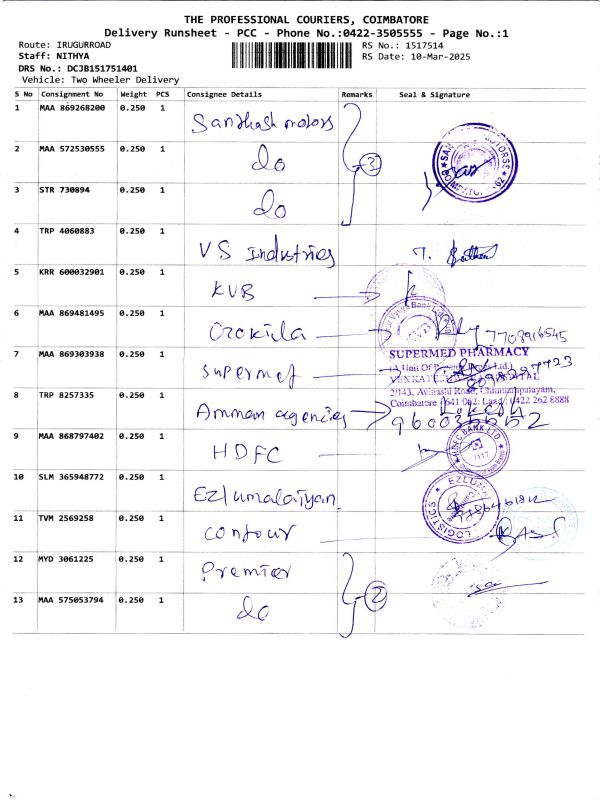 THE PROFESSIONAL COURIERS, COIMBATORE
Delivery Runsheet - PCC - Phone No.:0422-3505555 - Page No.:1
Route: IRUGURROAD
RS No.: 1517514
Staff: NITHYA
RS Date: 10-Mar-2025
DRS No.: DCJB151751401
Vehicle: Two Wheeler Delivery
S No Consignment No Weight PCS Consignee Details Remarks Seal & Signature
1 MAA 869268200 0.250 1 Santhosh motors
2 MAA 572530555 0.250 1 do 3
3 STR 730894 0.250 1 do
4 TRP 4060883 0.250 1 VS Industries
5 KRR 600032901 0.250 1 KVB
6 MAA 869481495 0.250 1 Crokida 7708916545
7 MAA 869303938 0.250 1 Supermef
SUPERMED PHARMACY
(A Unit Of
VENKAT
2/143, Avinashi Road, Chinniyampalayam,
Coimbatore - 641 062. Land: 0422 262 8888
8 TRP 8257335 0.250 1 Amman agencies
9 MAA 868797402 0.250 1 HDFC
HDFC BANK LTD
10 SLM 365948772 0.250 1 Ezlumalaiyan
LOGISTICS
11 TVM 2569258 0.250 1 Contour
12 MYD 3061225 0.250 1 Premier
13 MAA 575053794 0.250 1 do 2